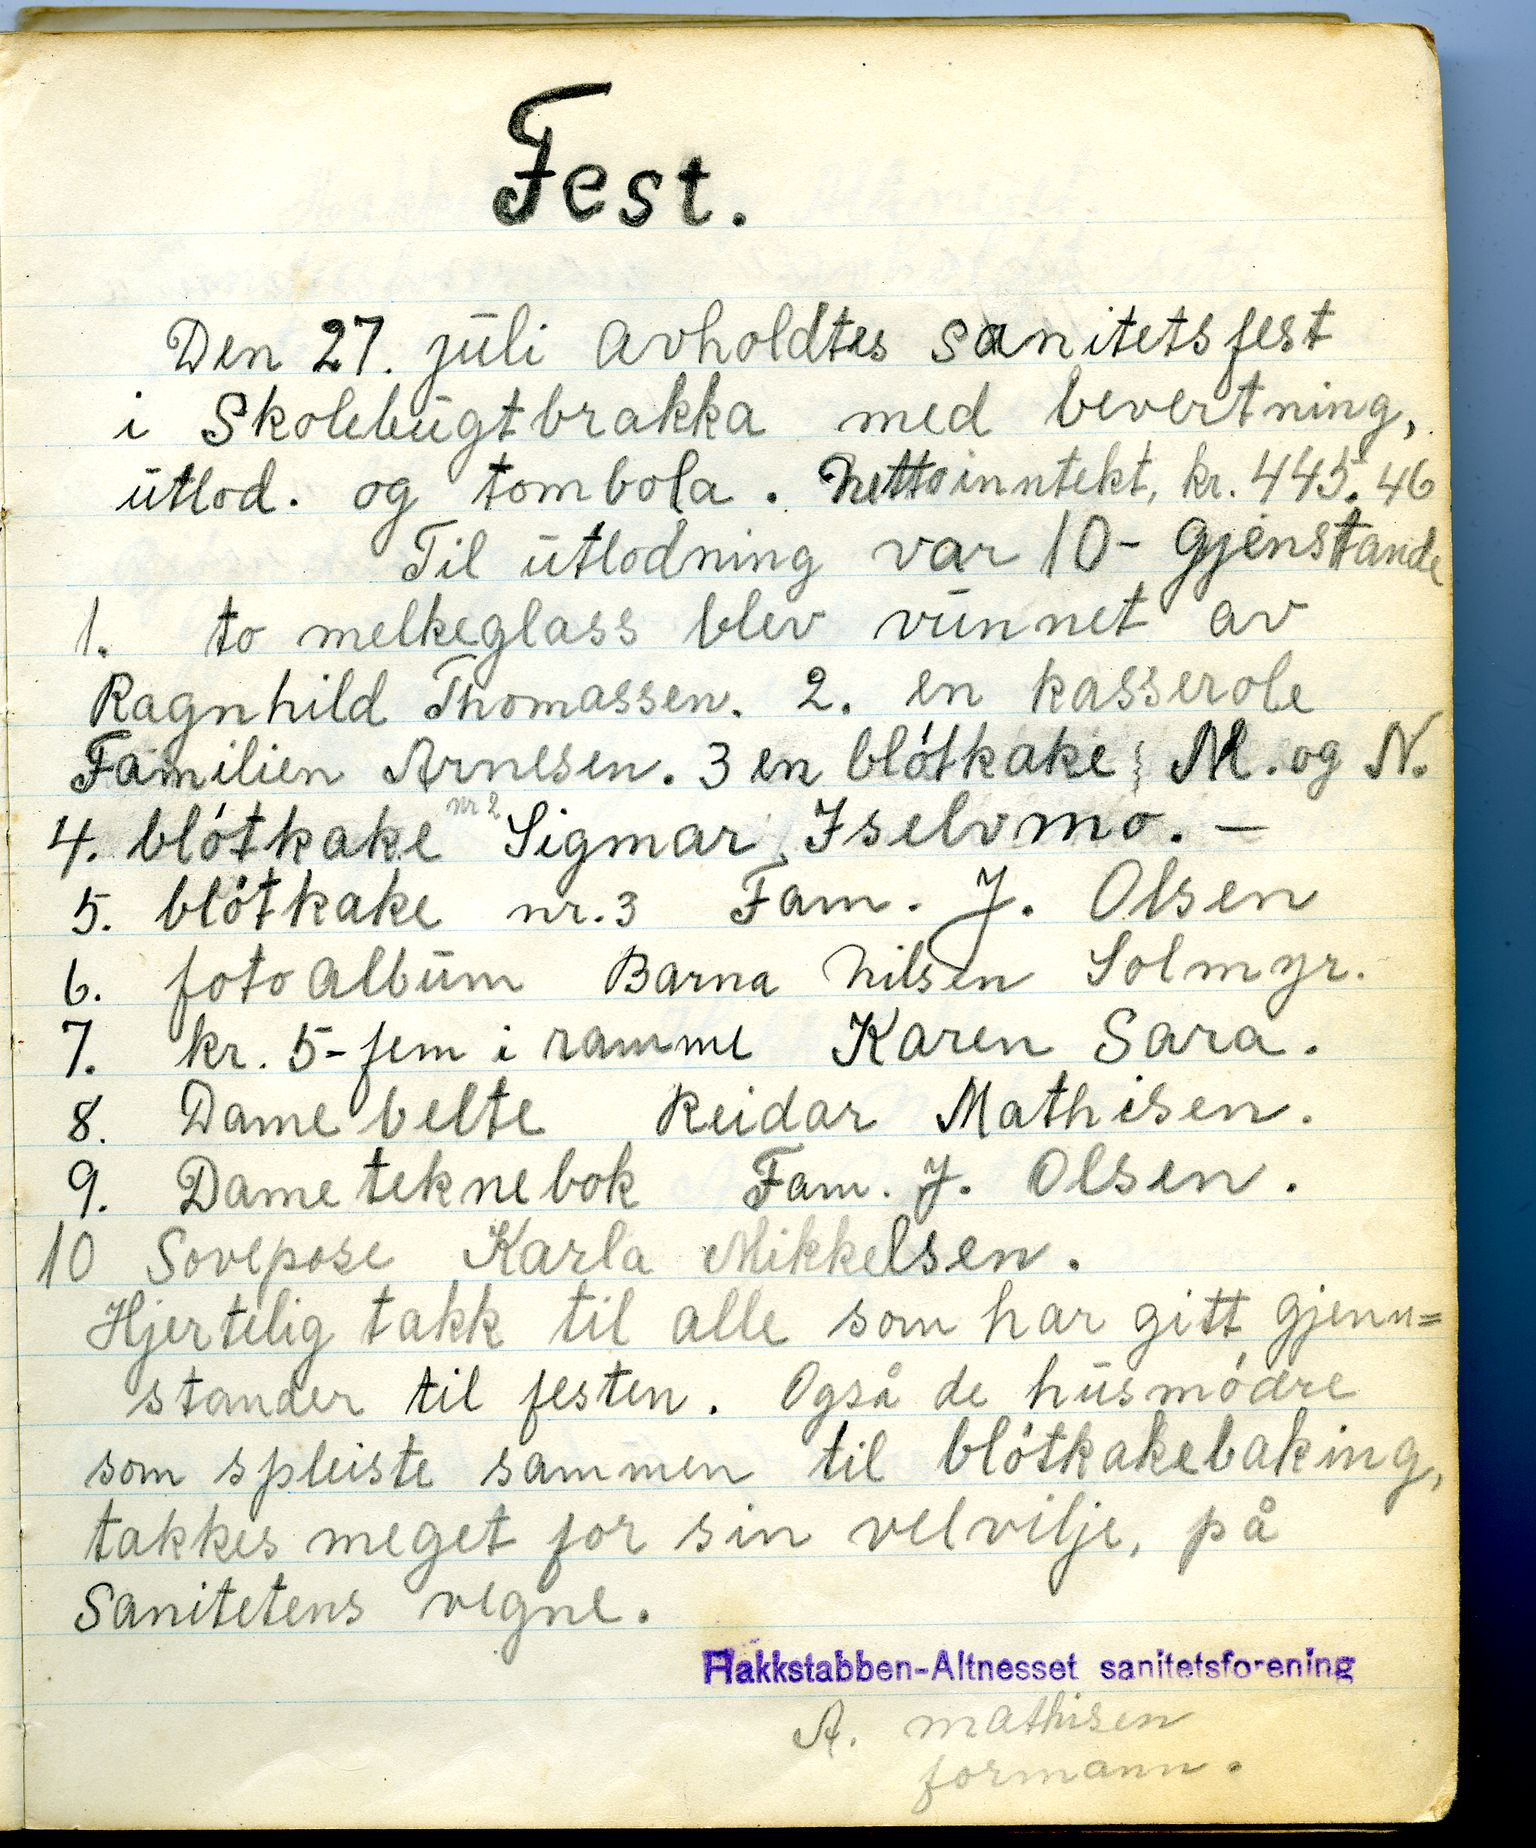 Fest.
Den 27. juli avholdtes sanitetsfest
i Skolebugtbrakka med bevertning,
utlod. og tombola. Netto inntekt, kr. 445.46
Til utlodning var 10- gjenstande
1. to melkeglass blev vunnet av
Ragnhild Thomassen. 2. en kasserole
Familien Arnesen. 3 en bløtkake; M. og N.
4. bløtkake nr 2 Sigmar Iselvmo. —
5. bløtkake nr. 3 Fam. J. Olsen
6. fotoalbum Barna Nilsen Solmyr.
7. kr. 5- fem i ramme Karen Sara.
8. Damebelte Reidar Mathisen.
9. Dameteknebok Fam. J. Olsen.
10 Sovepose Karla Mikkelsen.
Hjertelig takk til alle som har gitt gjenn=
stander til festen. Også de husmødre
som spleiste sammen til bløtkakebaking,
takkes meget for sin velvilje, på
Sanitetens vegne.
Hakkstabben-Altnesset sanitetsforening
A. mathisen
formann.